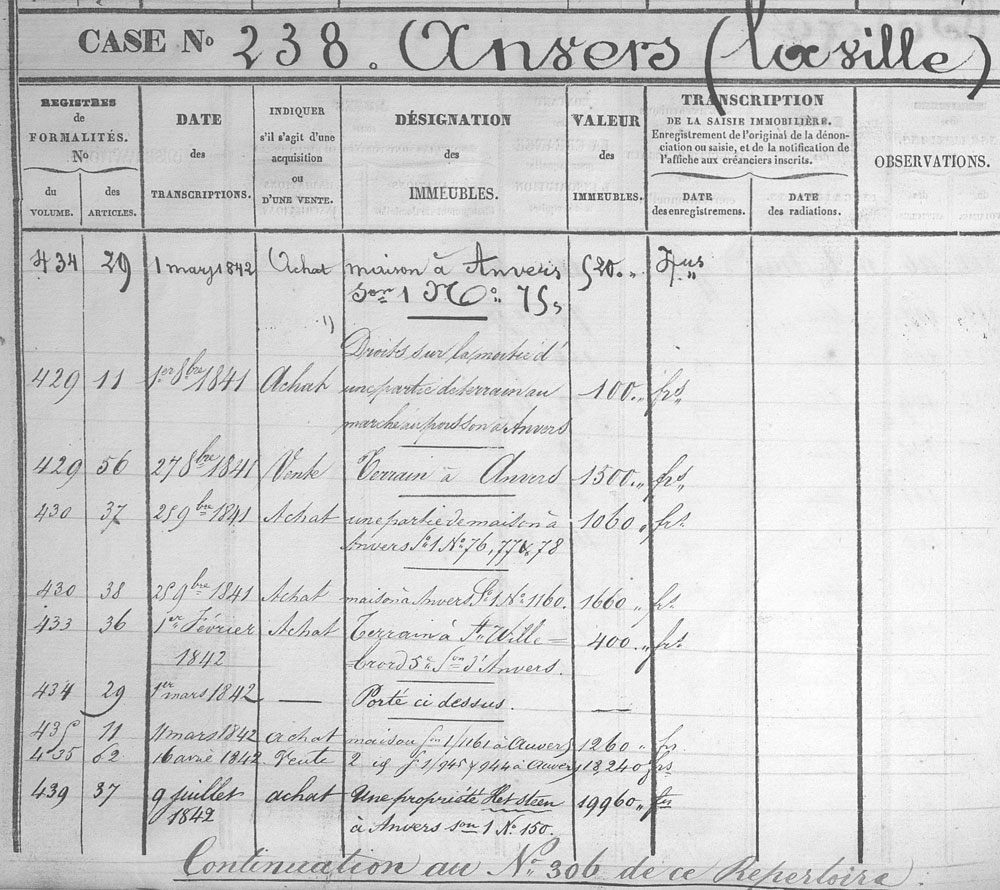 CASE No 238. Anvers (la ville)
REGISTRES de FORMALITÉS. No
du VOLUME.
des ARTICLES.
DATE des TRANSCRIPTIONS.
INDIQUER s'il s'agit d'une acquisition ou D'UNE VENTE.
DÉSIGNATION des IMMEUBLES.
VALEUR des IMMEUBLES.
TRANSCRIPTION
DE LA SAISIE IMMOBILIÈRE.
Enregistrement de l'original de la dénon-
ciation ou saisie, et de la notification de
l'affiche aux créanciers inscrits.
DATE des enregistremens.
DATE des radiations.
OBSERVATIONS.
434 29 1 mars 1842 Achat maison à Anvers 520.
son 1 No. 75
1)
Droits sur la moitié d'
429 11 1er 8bre 1841 Achat une partie de terrain au 100. frs
marché au poisson à Anvers
429 56 27 8bre 1841 Vente Terrain à Anvers 1500. frs
430 37 25 9bre 1841 Achat une partie de maison à 1060 frs.
Anvers Son 1 No 76, 77 & 78
430 38 25 9bre 1841 Achat maison à Anvers Son 1 No 1160. 1660 frs.
433 36 1er Février Achat Terrain à St. Wille= 400. frs
1842 brord 5e Son d'Anvers.
434 29 1er mars 1842 — Porté ci dessus. —
435 11 11 mars 1842 achat maison son 1/1161 à Anvers 1260. frs
435 62 16 avril 1842 Vente 2 1/945 & 944 à Anvers 13,240 frs
439 37 9 juillet achat Une propriété Het steen 19960. frs
1842 à Anvers son 1 No 150.
Continuation au No 306 de ce Repertoire